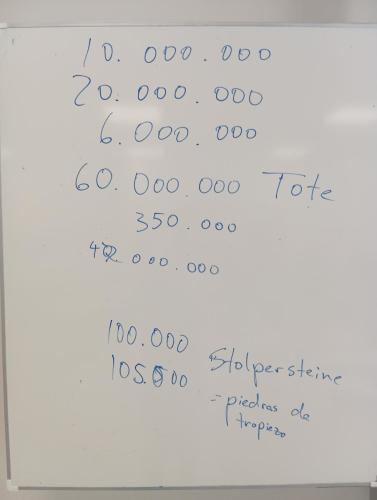 10.000.000
20.000.000
6.000.000
60.000.000 Tote
350.000
42.000.000
100.000
105.000 Stolpersteine
= piedras de
tropiezo